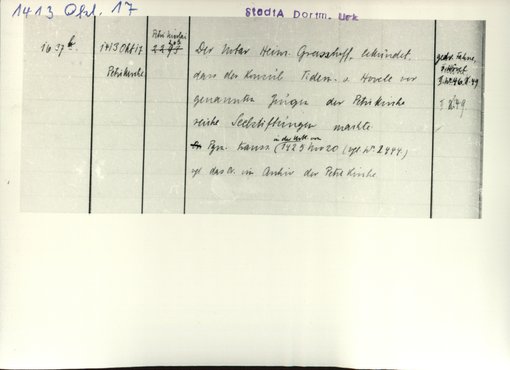 1413 Okt. 17
StadtA Dortm. Urk
1637 b.
1413 Okt 17
Petrikirche
Petri Nicolai
Der Notar Heinr. Grusstuff, bekundet,
dass der Konsil Tidem. v. Hovele vor
genannten Zeugen der Petrikirche
reiche Seelstiftungen machte
in der Urk von
Pgn. Transs. (1429 Nov 20 (vgl. Nr. 2444.)
vgl. das Or. im Archiv der Petrikirche
gedr. Fahne,
S. 49.